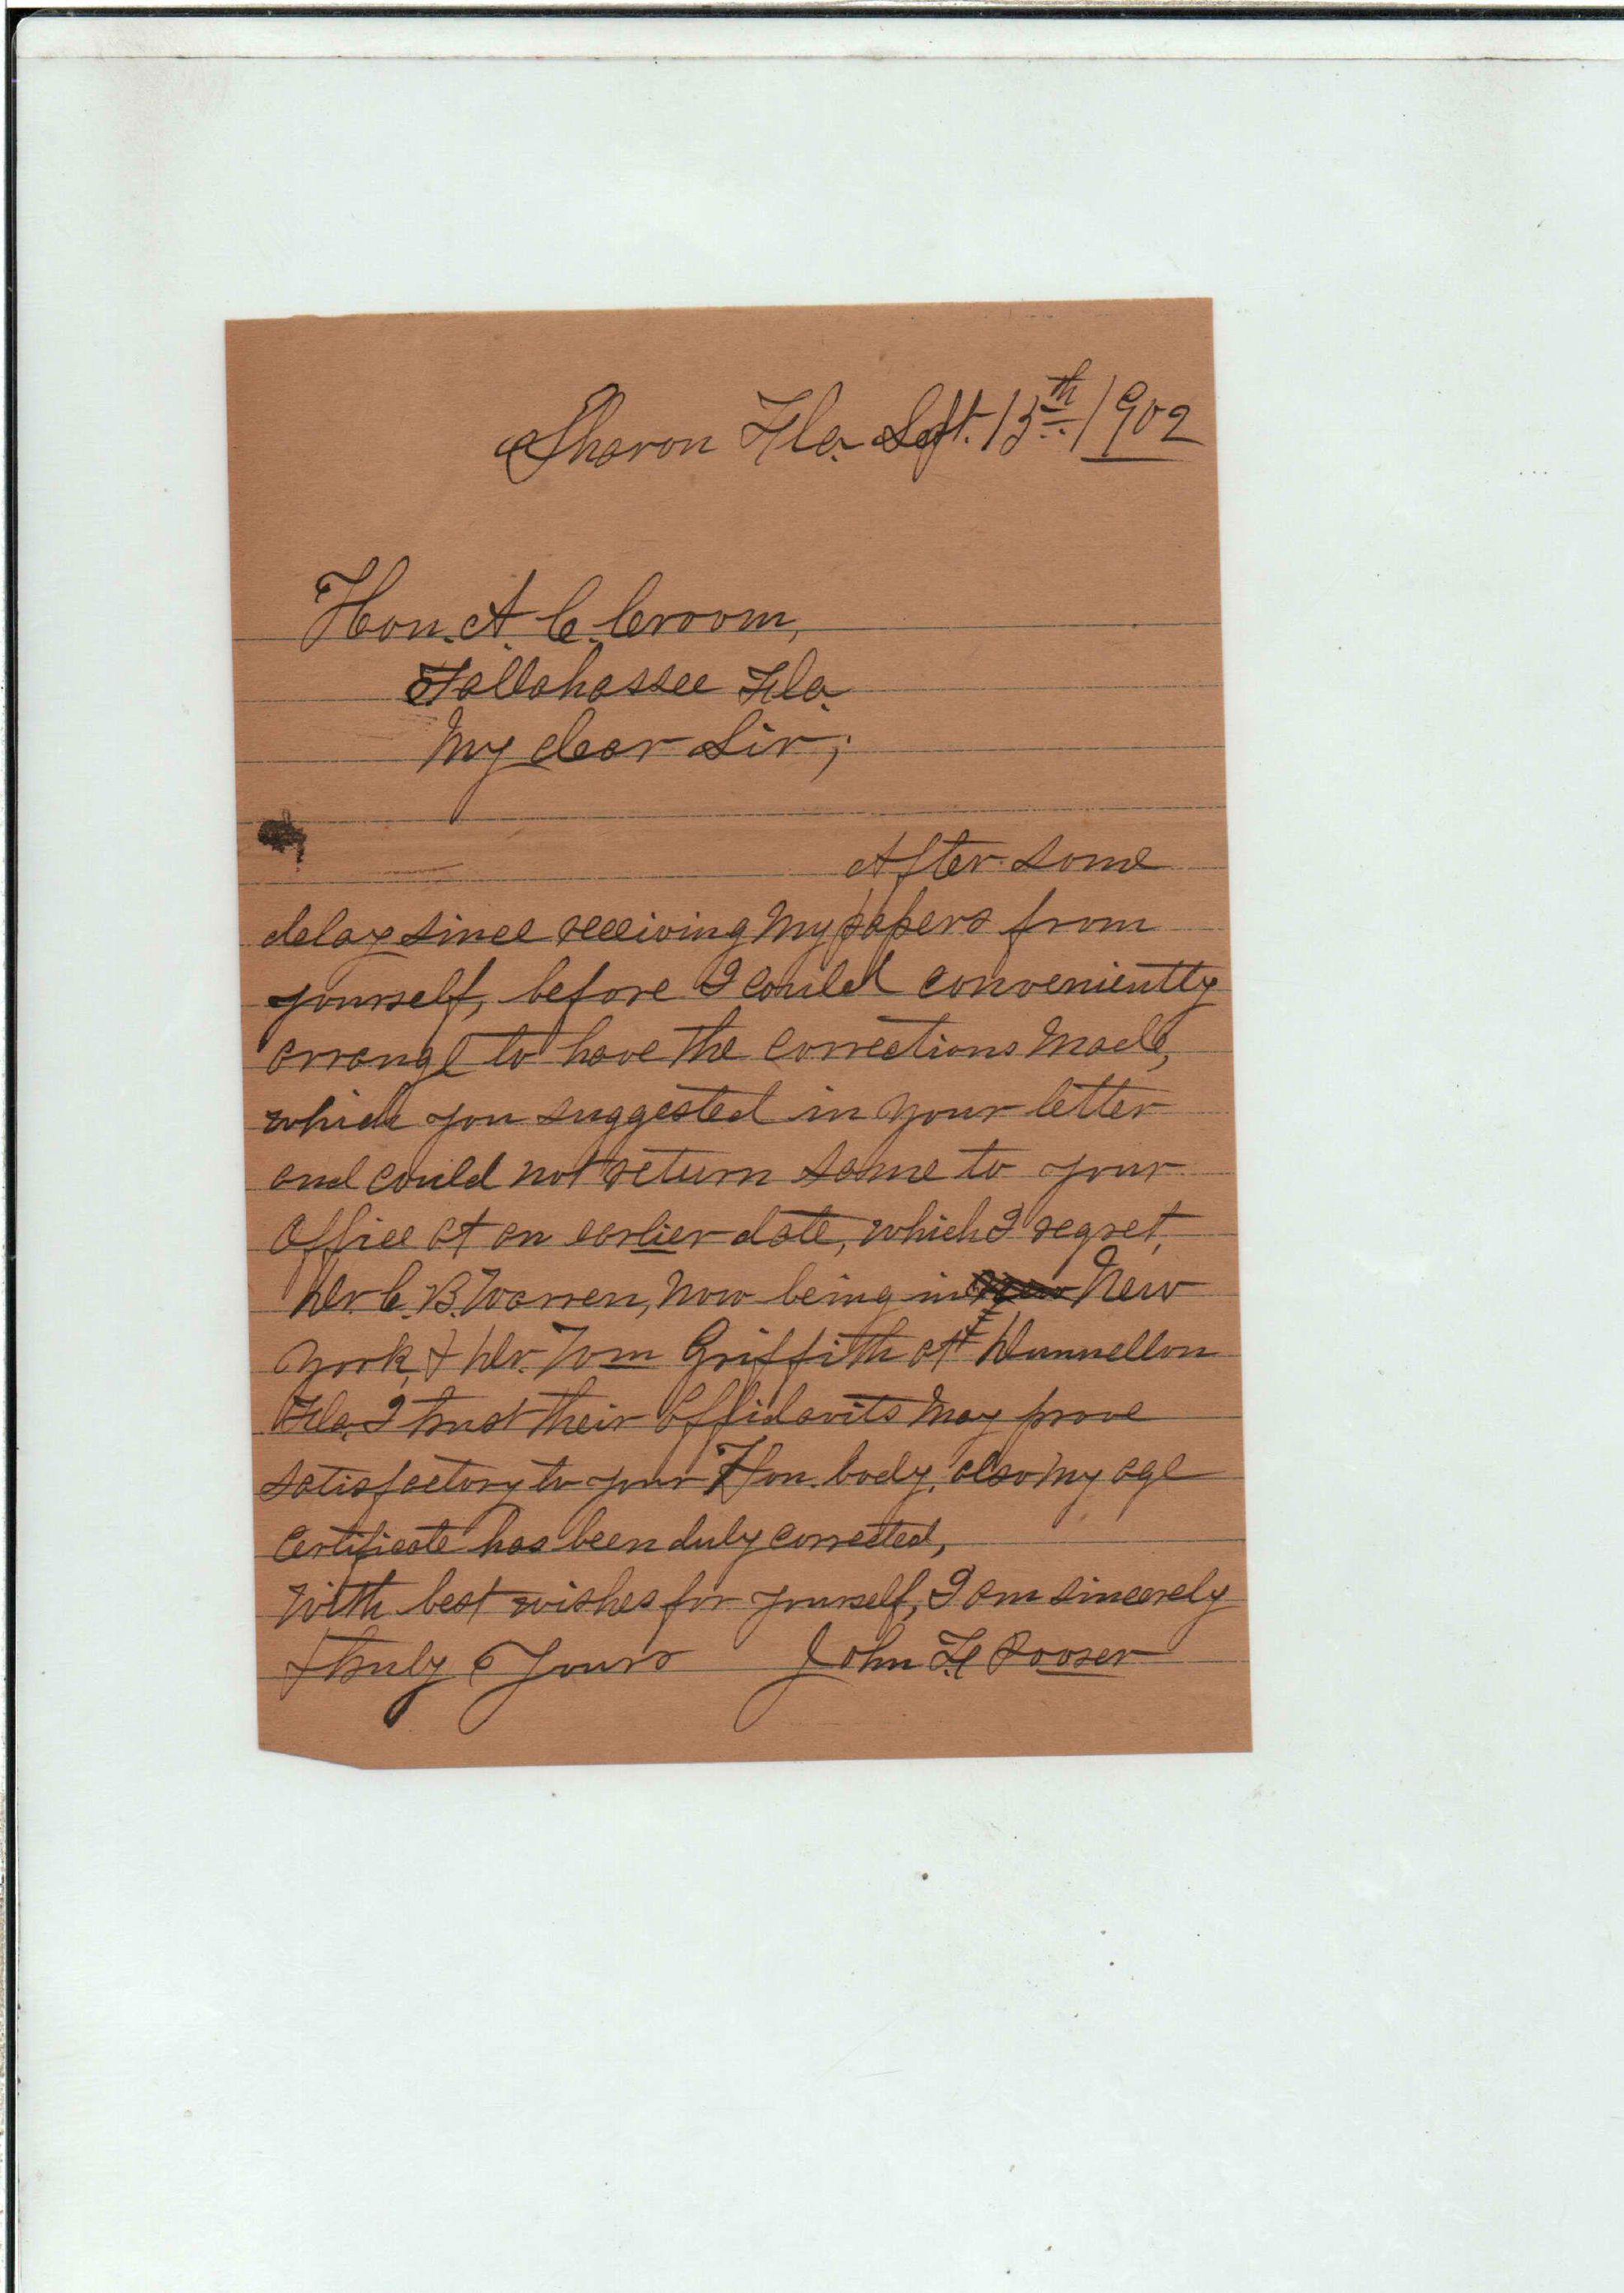 Sharon Fla. Sept. 15th 1902
Hon. A. C. Croom,
Tallahassee Fla.
My dear Sir;
After some
delay since receiving my papers from
yourself, before I could conveniently
arrange to have the corrections made,
which you suggested in your letter
and could not return same to your
office at an earlier date, which I regret,
Mr. C. B. Warren, now being in New New
York, & Mr. Tom Griffith at Dunnellon
Fla. I trust their affidavits may prove
satisfactory to your Hon. body, also my age
certificate has been duly corrected,
With best wishes for yourself, I am sincerely
& truly Yours John F.